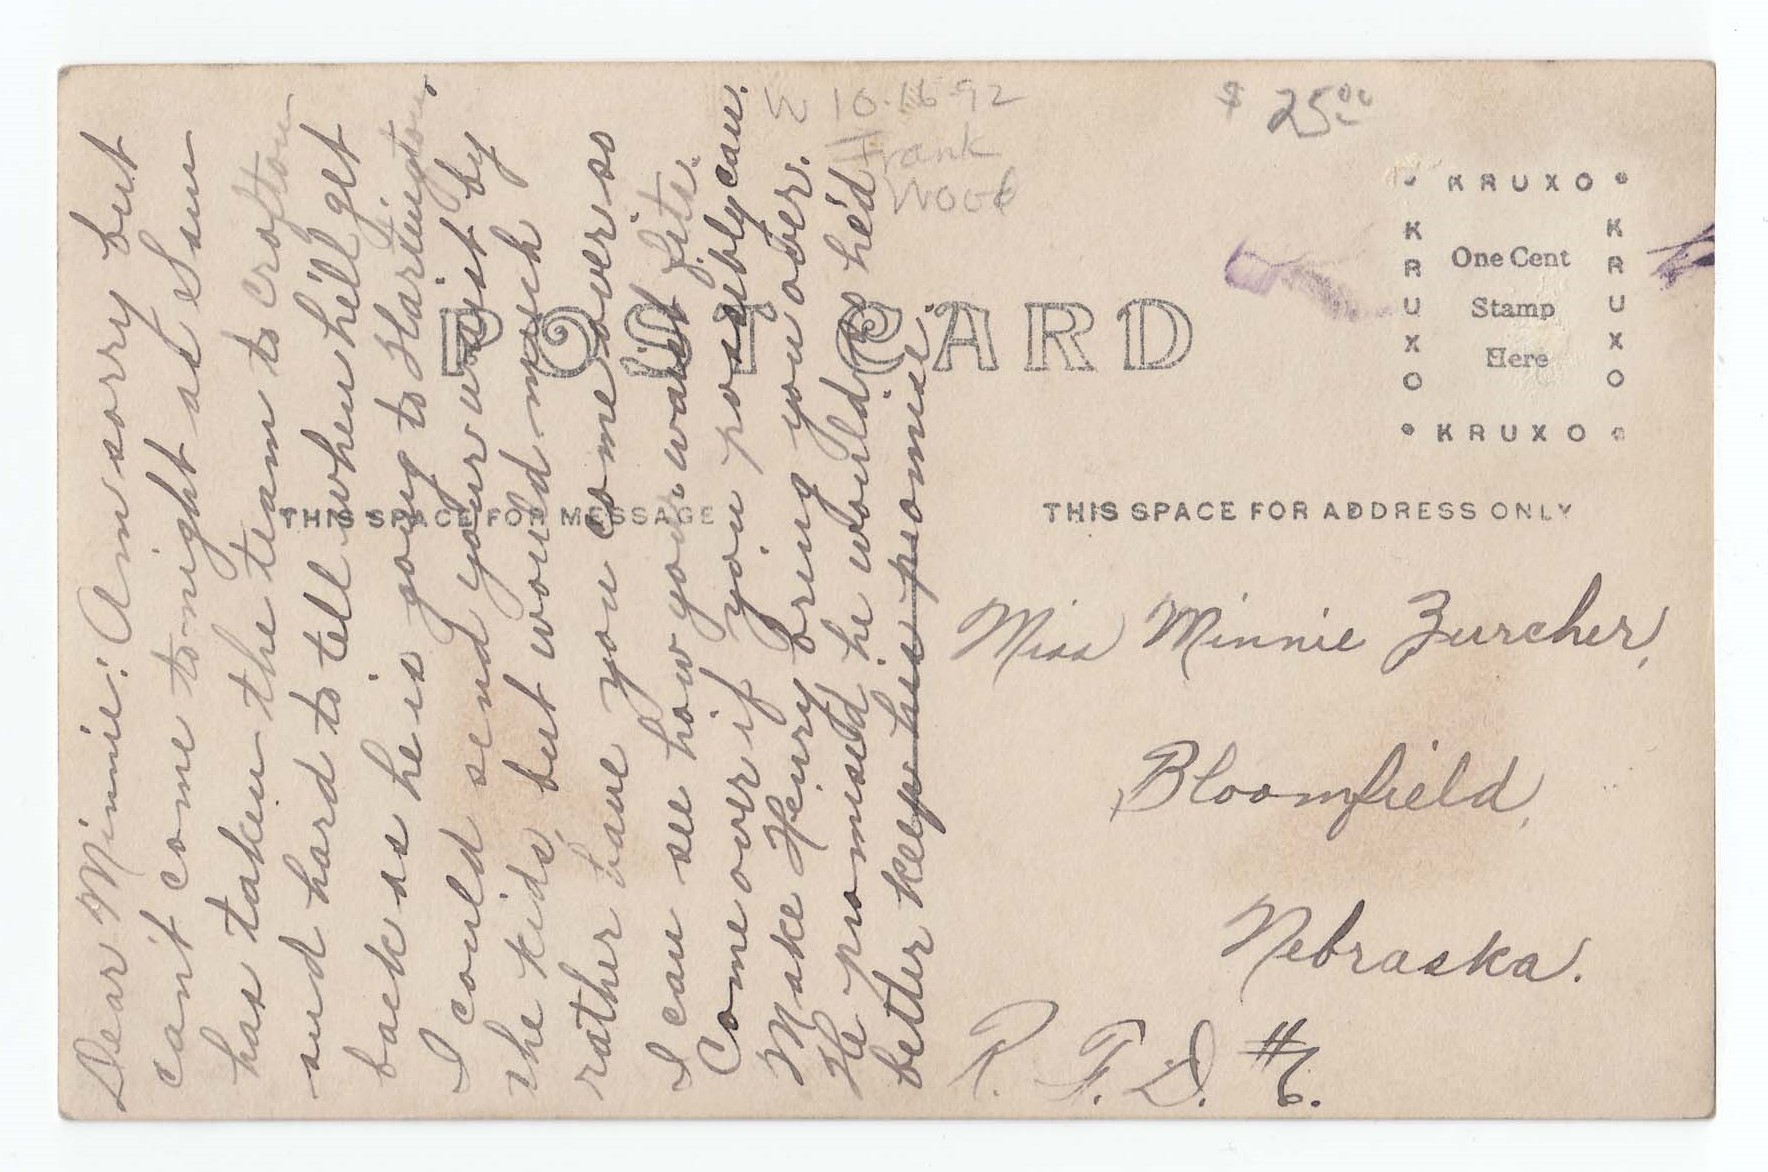 Dear Minnie: Am sorry but
can't come to-night as Sam
has taken the team to Crofton
and hard to tell when he'll get
back as he is going to Hartington,
I could send your waist by
the kids, but would much
rather have you come over so
I can see how your waist fits.
Come over if you possibly can.
Make Henry bring you over.
He promised he would so he'd
better keep his promise.
W 10-16-92
Frank
Wood
$ 25.00
POST CARD
KRUXO
KRUXO
One Cent
Stamp
Here
KRUXO
KRUXO
THIS SPACE FOR MESSAGE
THIS SPACE FOR ADDRESS ONLY
Miss Minnie Zurcher,
Bloomfield,
Nebraska.
R. F. D. #6.